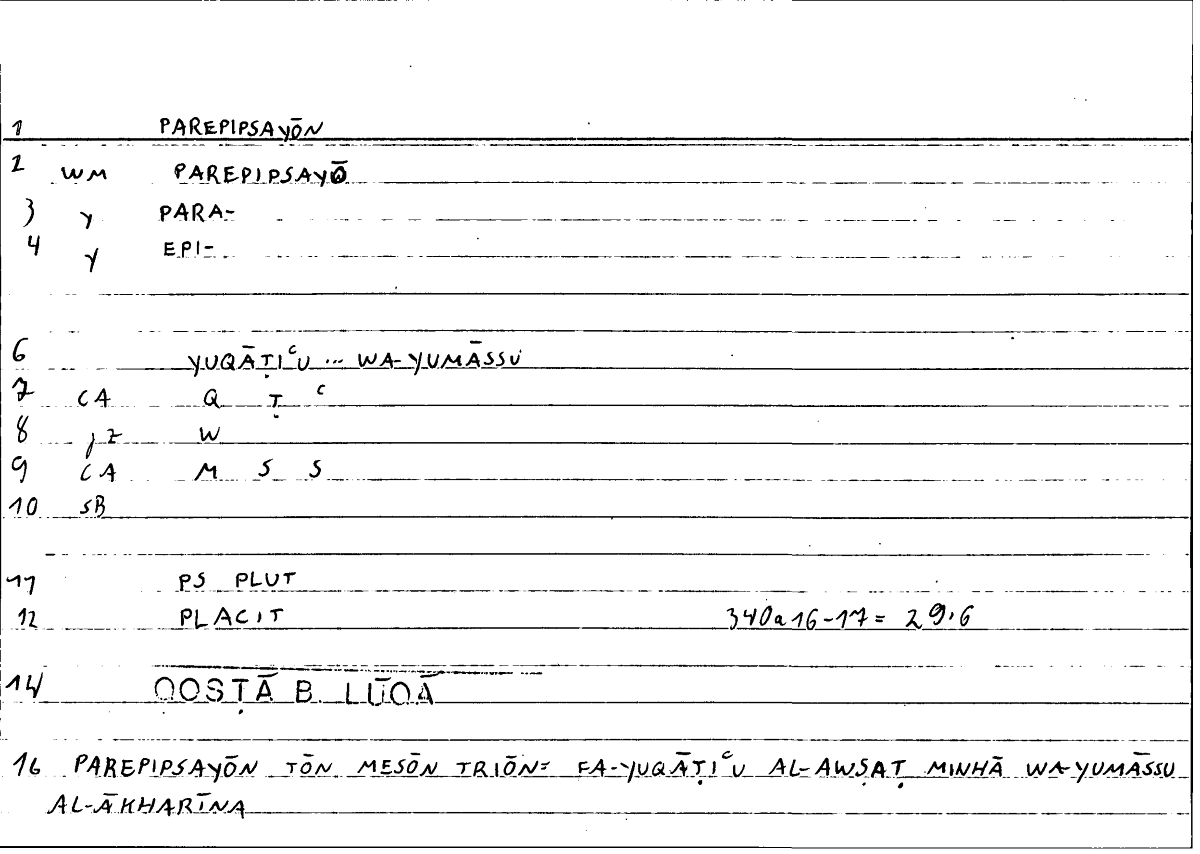 1 PAREPIPSAYŌN
2 WM PAREPIPSAYŌ
3 y PARA-
4 y EPI-
6 YUQĀṬIᶜU ... WA-YUMĀSSU
7 CA Q Ṭ ᶜ
8 jz W
9 CA M S S
10 SB
11 PS PLUT
12 PLACIT 340a16-17= 29,6
14 QOSṬĀ B. LŪQĀ
16 PAREPIPSAYŌN TŌN MESŌN TRIŌN= FA-YUQĀṬIᶜU AL-AWṢAṬ MINHĀ WA-YUMĀSSU
AL-ĀKHARĪNA